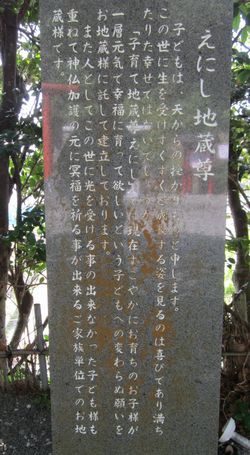 えにし地蔵尊
子どもは、天からの授かりものと申します。
この世に生を受けすくすくと成長する姿を見るのは喜びであり満ち
たりた幸せではないでしょうか。
「子育て地蔵尊えにし」は現在すこやかにお育ちのお子様が
一層元気で幸福に育って欲しいという子どもへの変わらぬ願いを
お地蔵様に託して建立しております。
また人としてこの世に光を受ける事の出来なかった子ども様も
重ねて神仏加護の元に冥福を祈る事が出来るご家族単位でのお地
蔵様です。